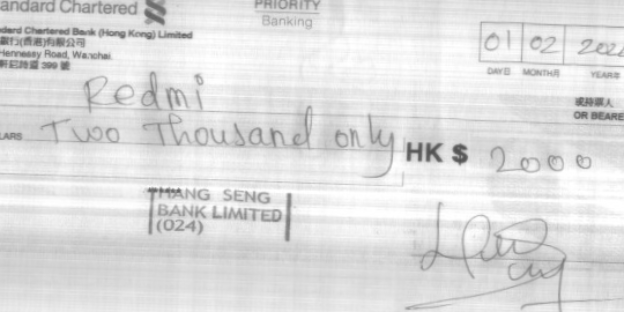 andard Chartered
PRIORITY
Banking
dard Chartered Bank (Hong Kong) Limited
銀行(香港)有限公司
Hennessy Road, Wanchai.
軒尼詩道 399 號
01 02
DAY日 MONTH月 YEAR年
Redmi
或持票人
OR BEARE
LARS Two Thousand only HK $ 2000
HANG SENG
BANK LIMITED
(024)